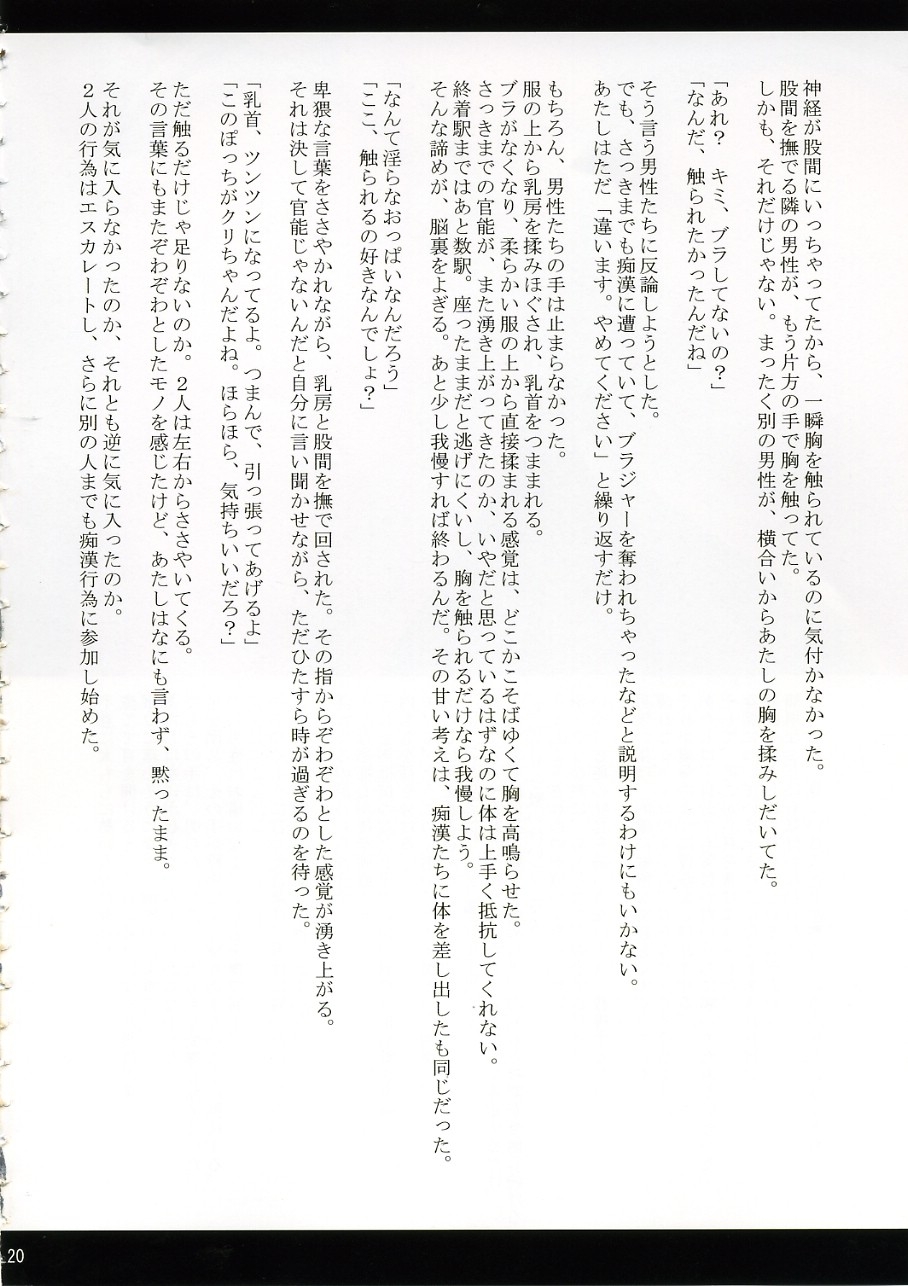 神経が股間にいっちゃってたから、一瞬胸を触られているのに気付かなかった。
股間を撫でる隣の男性が、もう片方の手で胸を触ってた。
しかも、それだけじゃない。まったく別の男性が、横合いからあたしの胸を揉みしだいてた。
「あれ?　キミ、ブラしてないの?」
「なんだ、触られたかったんだね」
そう言う男性たちに反論しようとした。
でも、さっきまでも痴漢に遭っていて、ブラジャーを奪われちゃったなどと説明するわけにもいかない。
あたしはただ「違います。やめてください」と繰り返すだけ。
もちろん、男性たちの手は止まらなかった。
服の上から乳房を揉みほぐされ、乳首をつままれる。
ブラがなくなり、柔らかい服の上から直接揉まれる感覚は、どこかこそばゆくて胸を高鳴らせた。
さっきまでの官能が、また湧き上がってきたのか、いやだと思っているはずなのに体は上手く抵抗してくれない。
終着駅まではあと数駅。座ったままだと逃げにくいし、胸を触られるだけなら我慢しよう。
そんな諦めが、脳裏をよぎる。あと少し我慢すれば終わるんだ。その甘い考えは、痴漢たちに体を差し出したも同じだった。
「なんて淫らなおっぱいなんだろう」
「ここ、触られるの好きなんでしょ?」
卑猥な言葉をささやかれながら、乳房と股間を撫で回された。その指からぞわぞわとした感覚が湧き上がる。
それは決して官能じゃないんだと自分に言い聞かせながら、ただひたすら時が過ぎるのを待った。
「乳首、ツンツンになってるよ。つまんで、引っ張ってあげるよ」
「このぽっちがクリちゃんだよね。ほらほら、気持ちいいだろ?」
ただ触るだけじゃ足りないのか。2人は左右からささやいてくる。
その言葉にもまたぞわぞわとしたモノを感じたけど、あたしはなにも言わず、黙ったまま。
それが気に入らなかったのか、それとも逆に気に入ったのか。
2人の行為はエスカレートし、さらに別の人までも痴漢行為に参加し始めた。
20